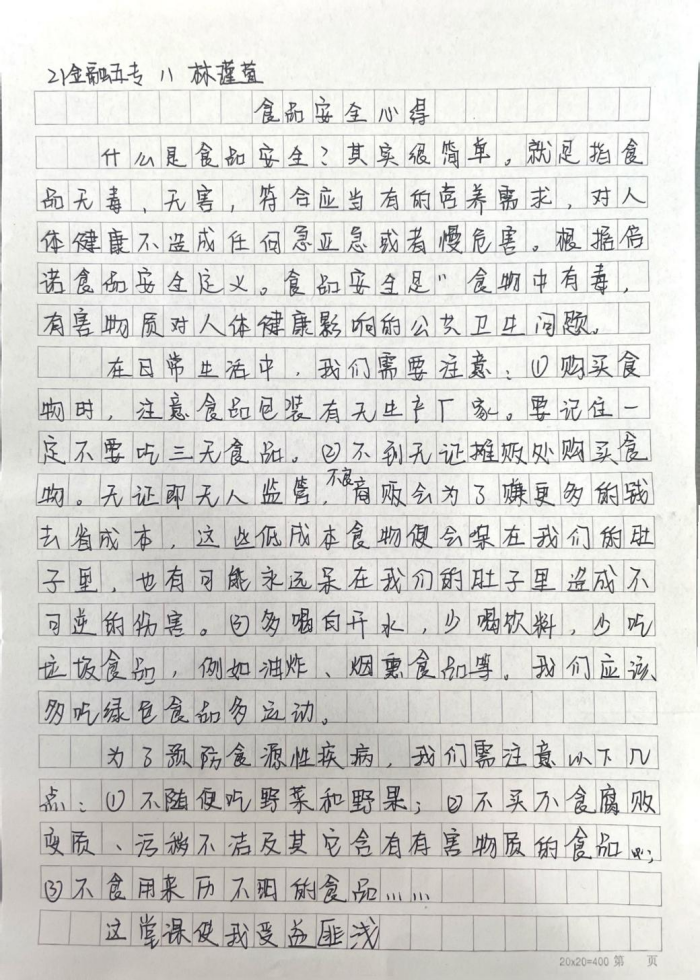 21金融五专 11 林瑾萱
食品安全心得
什么是食品安全？其实很简单。就是指食
品无毒、无害，符合应当有的营养需求，对人
体健康不造成任何急亚急或者慢危害。根据倍
诺食品安全定义。食品安全是“食物中有毒，
有害物质对人体健康影响的公共卫生问题。
在日常生活中，我们需要注意：①购买食
物时，注意食品包装有无生产厂家。要记住一
定不要吃三无食品。②不到无证摊贩处购买食
物。无证即无人监管，不良商贩会为了赚更多的钱
去省成本，这些低成本食物便会呆在我们的肚
子里，也有可能永远呆在我们的肚子里造成不
可逆的伤害。③多喝白开水，少喝饮料，少吃
垃圾食品，例如油炸、烟熏食品等。我们应该
多吃绿色食品多运动。
为了预防食源性疾病，我们需注意以下几
点：①不随便吃野菜和野果；②不买不食腐败
变质、污秽不洁及其它含有有害物质的食品…；
③不食用来历不明的食品……
这堂课使我受益匪浅
20×20=400 第 页